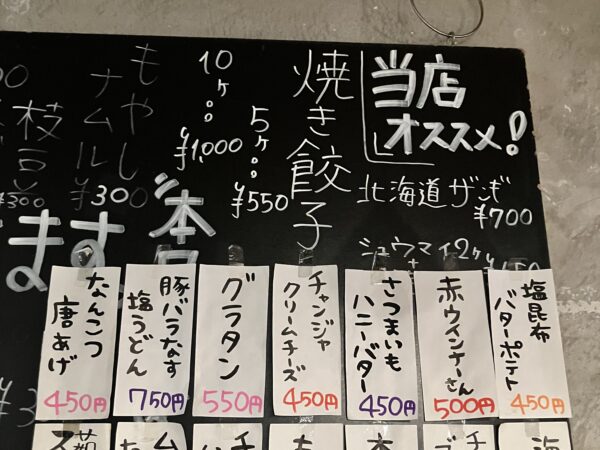 当店
オススメ!
北海道ザンギ
¥700
シュウマイ2ヶ
焼き餃子
5ヶ…¥550
10ヶ…¥1,000
もやし
ナムル
¥300
枝豆
¥300
ます
塩昆布
バターポテト
450円
赤ウインナーさん
500円
さつまいも
ハニーバター
450円
チャンジャ
クリームチーズ
450円
グラタン
550円
豚バラなす
塩うどん
750円
なんこつ
唐あげ
450円